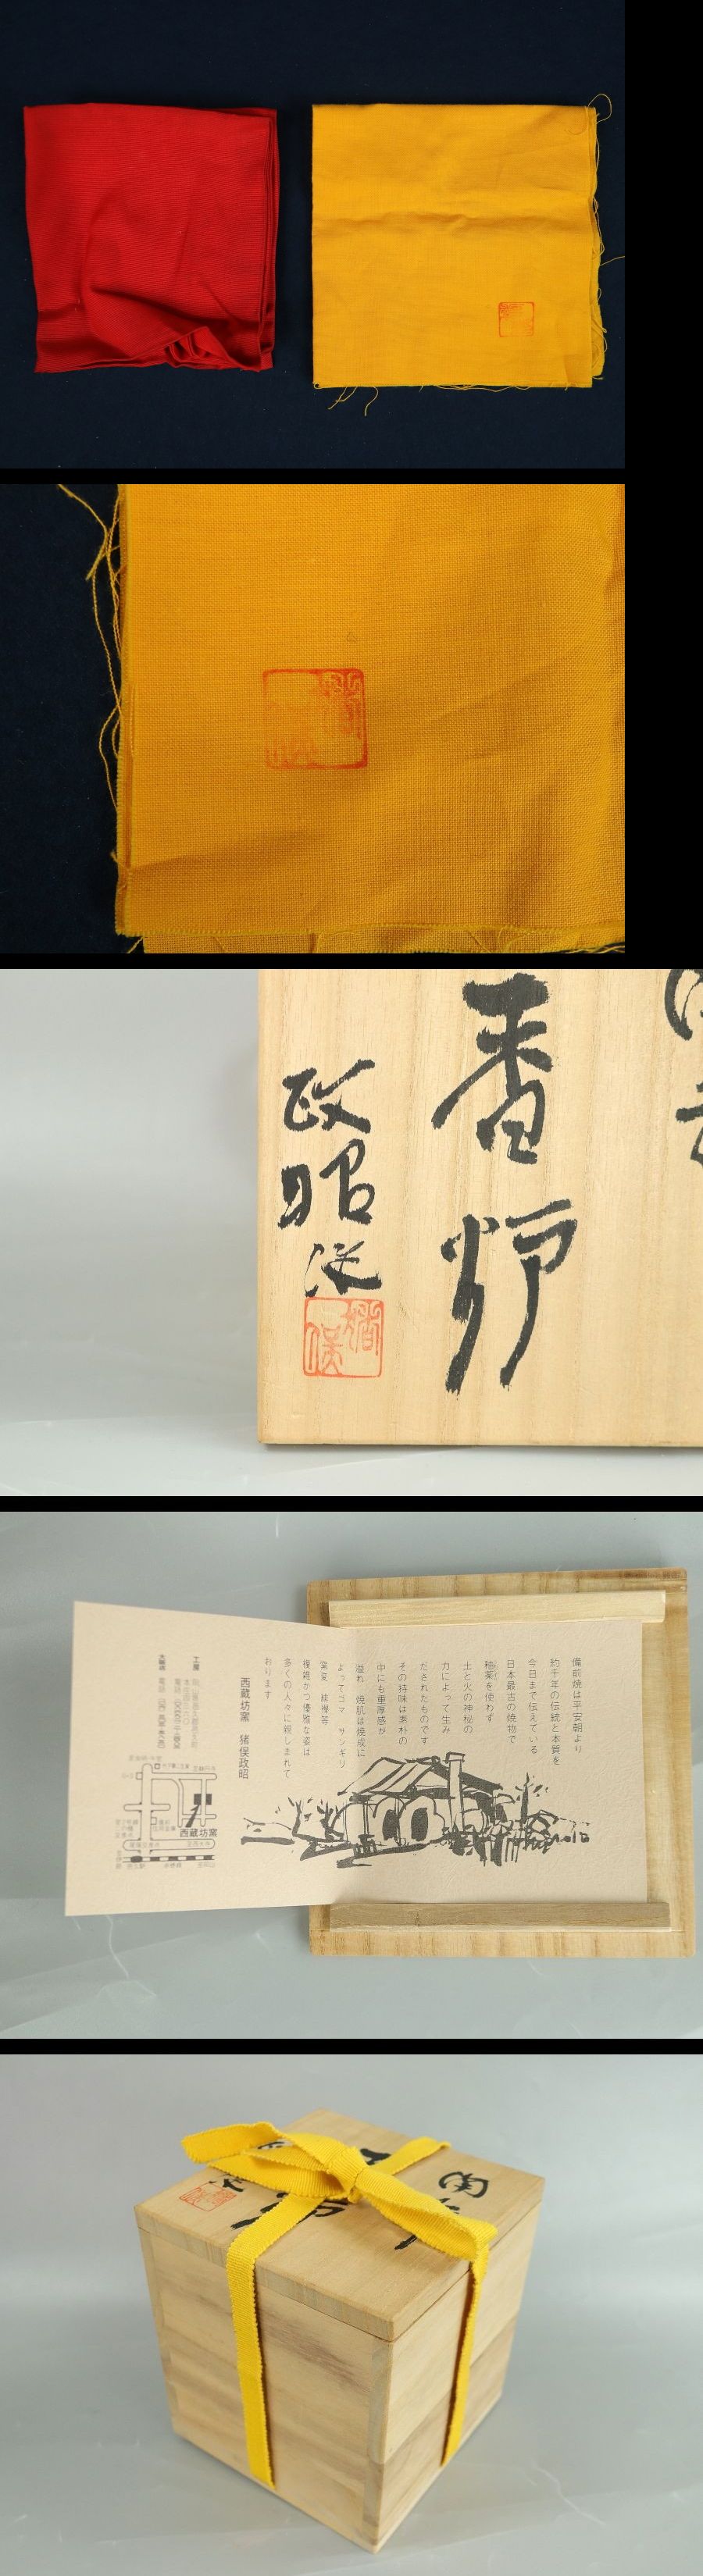 香炉
政昭
猪俣
備前焼は平安朝より
約千年の伝統と本質を
今日まで伝えている
日本最古の焼物で
釉薬を使わず
土と火の神秘の
力によって生み
だされたものです
その特味は素朴の
中にも重厚感が
溢れ 焼肌は焼成に
よってゴマ サンギリ
窯変 緋襷等
複雑かつ優雅な姿は
多くの人々に親しまれて
おります
西蔵坊窯 猪俣政昭
工房
西蔵坊窯